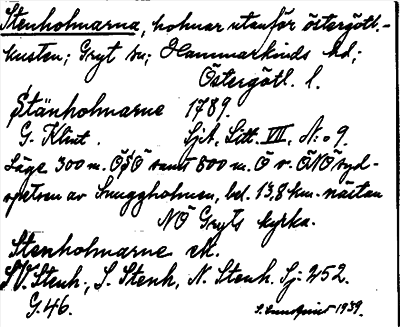 Stenholmarna, holmar utanför östergötl.-
kusten; Gryt sn; Hammarkinds hd;
Östergötl. l.
Stänholmarne 1789.
G. Klint. Sjk, Litt. VII, N:o 9.
Läge 300 m. ÖSÖ samt 800 m. Ö v. ÖNÖ syd-
spetsen av Snuggholmen, bel. 13,8 km. nästan
NÖ Gryts kyrka.
Stenholmarne ek.
SV. Stenh., S. Stenh., N. Stenh. Sj: 252.
G. 46. 1939.